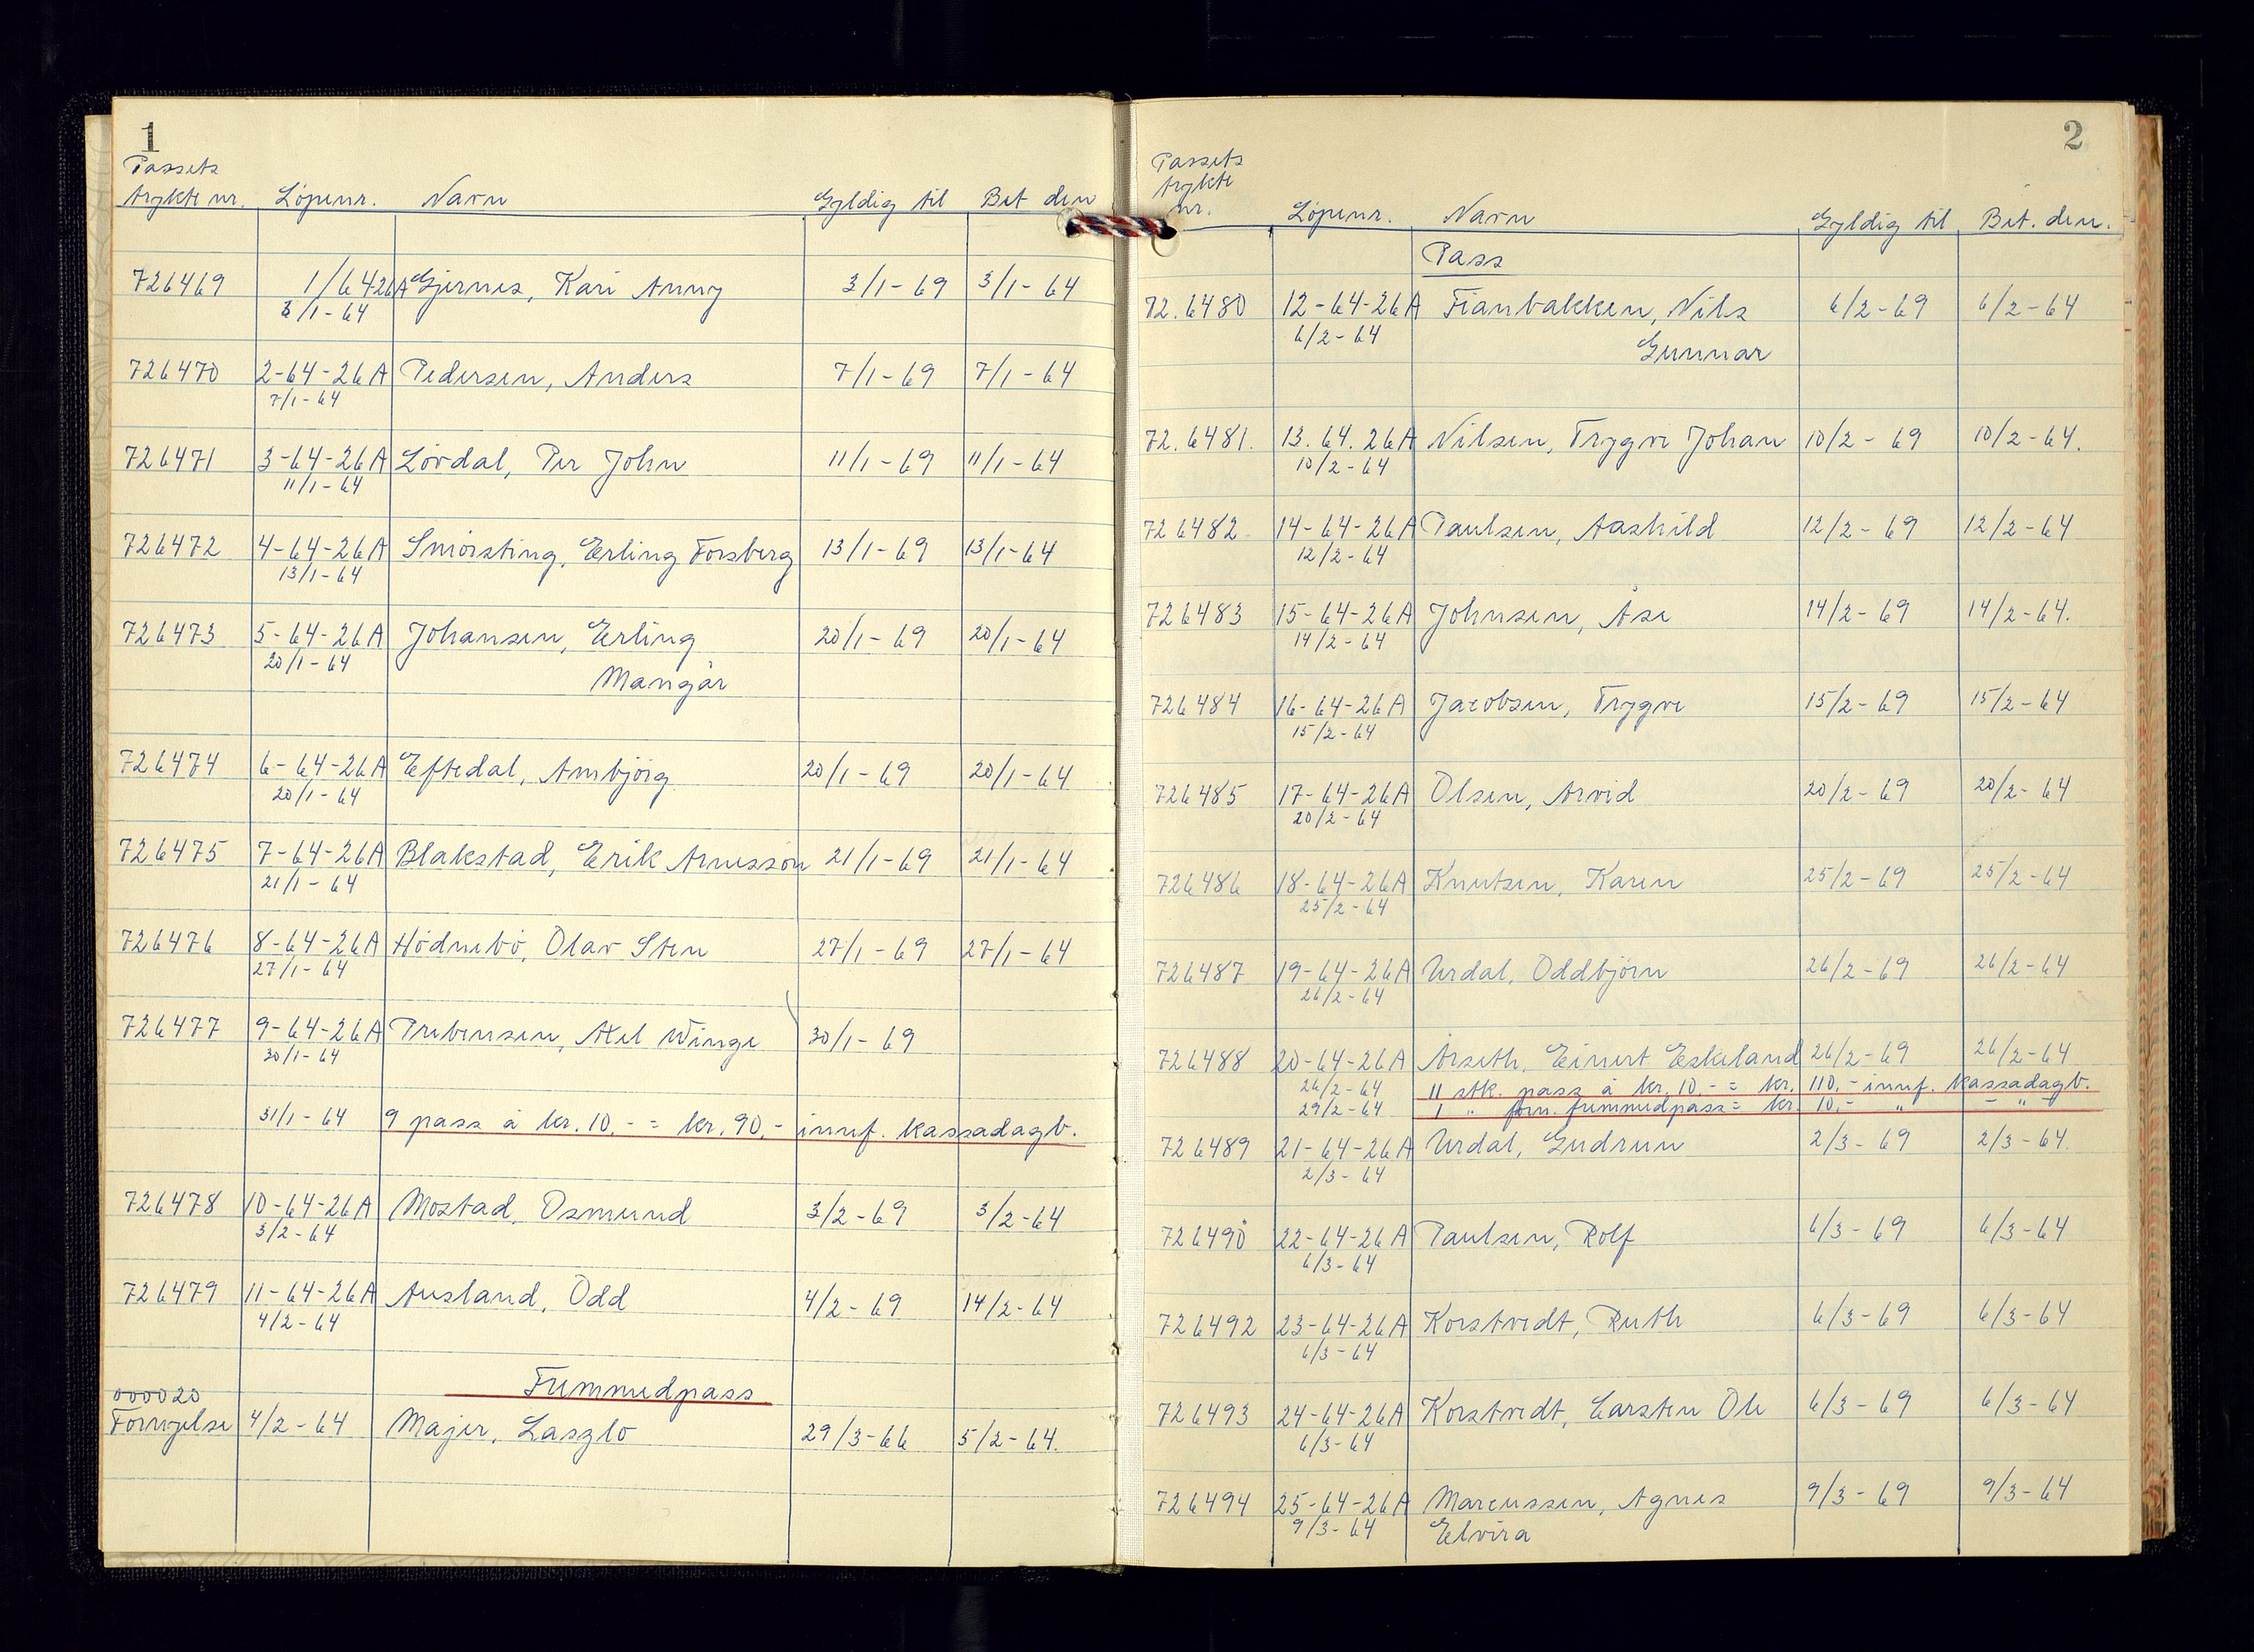 1
Passets
trykte nr. Löpenr. Navn Gyldig til Bet den
726469 1/64 26A Gjernes, Kari Anny 3/1-69 3/1-64
3/1-64
726470 2-64-26A Pedersen, Anders 7/1-69 7/1-64
7/1-64
726471 3-64-26A Lövdal, Per John 11/1-69 11/1-64
11/1-64
726472 4-64-26A Smörsting, Erling Forsberg 13/1-69 13/1-64
13/1-64
726473 5-64-26A Johansen, Erling 20/1-69 20/1-64
20/1-64 Mangår
726474 6-64-26A Eftedal, Ambjörg 20/1-69 20/1-64
20/1-64
726475 7-64-26A Blakstad, Erik Arnesson 21/1-69 21/1-64
21/1-64
726476 8-64-26A Hödnebö, Olav Sten 27/1-69 27/1-64
27/1-64
726477 9-64-26A Prebensen, Axel Winge 30/1-69
30/1-64
31/1-64 9 pass à kr. 10,- = kr. 90,- innf. kassadagb.
726478 10-64-26A Mostad, Osmund 3/2-69 3/2-64
3/2-64
726479 11-64-26A Ausland, Odd 4/2-69 14/2-64
4/2-64
Fremmedpass
000020
Fornyelse 4/2-64 Majer, Laszlo 29/3-66 5/2-64.
2
Passets
trykte
nr. Löpenr. Navn Gyldig til Bet. den.
Pass
72.6480 12-64-26A Fianbakken, Nils 6/2-69 6/2-64
6/2-64 Gunnar
72.6481. 13.64.26A Nilsen, Trygve Johan 10/2-69 10/2-64.
10/2-64
726482. 14-64-26A Paulsen, Aashild 12/2-69 12/2-64
12/2-64
726483 15-64-26A Johnsen, Åse 14/2-69 14/2-64.
14/2-64
726484 16-64-26A Jacobsen, Trygve 15/2-69 15/2-64
15/2-64
726485 17-64-26A Olsen, Arvid 20/2-69 20/2-64
20/2-64
726486 18-64-26A Knutsen, Karen 25/2-69 25/2-64
25/2-64
726487 19-64-26A Urdal, Oddbjörn 26/2-69 26/2-64
26/2-64
726488 20-64-26A Årseth, Einert Eskeland 26/2-69 26/2-64
26/2-64 11 stk. pass à kr. 10,- = kr. 110,- innf. kassadagb.
29/2-64 1 " forn. fremmedpass = kr. 10,- " - " -
726489 21-64-26A Urdal, Gudrun 2/3-69 2/3-64.
2/3-64
726490 22-64-26A Paulsen, Rolf 6/3-69 6/3-64
6/3-64
726492 23-64-26A Korstvedt, Ruth 6/3-69 6/3-64
6/3-64
726493 24-64-26A Korstvedt, Carsten Ole 6/3-69 6/3-64
6/3-64
726494 25-64-26A Marcussen, Agnes 9/3-69 9/3-64
9/3-64 Elvira